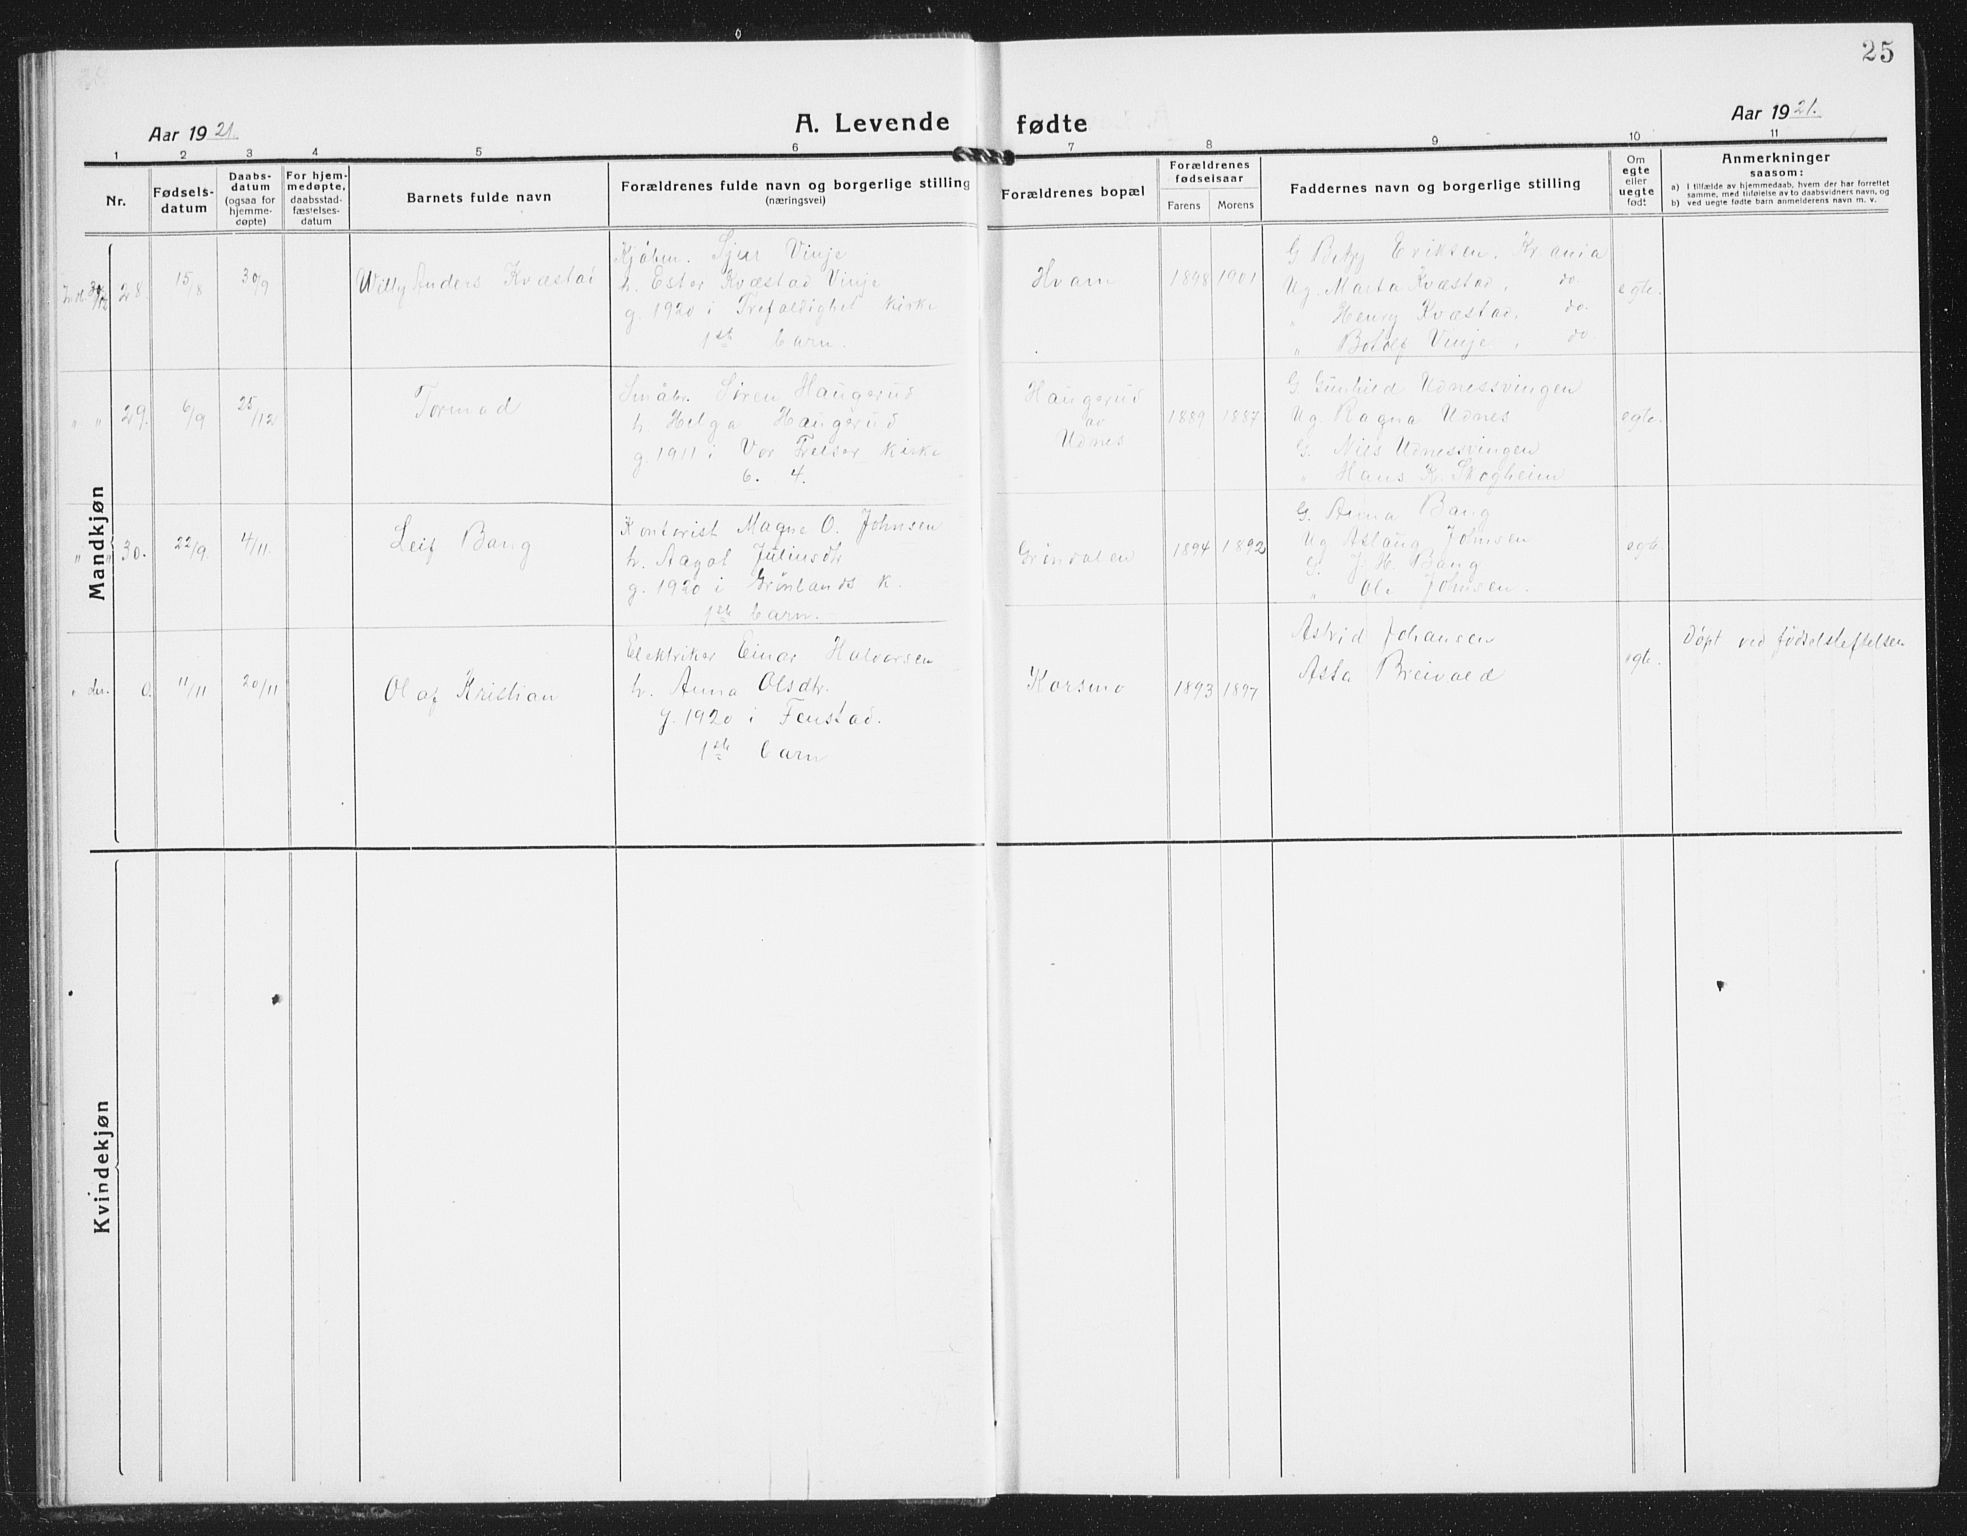 25
Aar 1921.
A. Levende fødte
Aar 1921.
1 2 3 4 5 6 7 8 9 10 11
Nr.
Fødsels-
datum
Daabs-
datum
(ogsaa for
hjemme-
døpte)
For hjem-
medøpte,
daabsstad-
fæstelses-
datum
Barnets fulde navn
Forældrenes fulde navn og borgerlige stilling
(næringsvei)
Forældrenes bopæl
Forældrenes
fødselsaar
Farens Morens
Faddernes navn og borgerlige stilling
Om
egte
eller
uegte
født
Anmerkninger
saasom:
a) I tilfælde av hjemmedaab, hvem der har forrettet
samme, med tilføielse av to daabsvidners navn, og
b) ved uegte fødte barn anmelderens navn m. v.
Mandkjøn
28. 15/8 30/9
Willy Anders Kvæstad
Kjøbm. Sjur Vinje
h. Ester Kvæstad Vinje
g. 1920 i Trefaldighet kirke
1ste barn.
Hvam
1898 1901
G Betzy Eriksen, Kr ania
Ug. Marta Kvæstad, do.
" Henry Kvæstad, do.
" Botolf Vinje, do.
egte.
" " 29. 6/9 25/12
Tormod
Småbr. Søren Haugerud
h. Helga Haugerud
g. 1911 i Vor Frelser kirke
6. 4.
Haugerud
av
Udnes
1889 1887
G. Gunhild Udnessvingen
Ug. Ragna Udnes
G. Nils Udnessvingen
" Hans K. Skogheim
egte.
" " 30. 22/9 4/11.
Leif Bang
Kontorist Magne O. Johnsen
h. Aagot Juliusdtr
g. 1920 i Grønlands k.
1ste barn.
Grøndalen
1894 1892
G. Anna Bang
Ug Aslaug Johnsen
G. J. H. Bang
" Ole Johnsen.
egte.
0. 11/11 20/11
Olaf Kristian
Elektriker Einar Halvorsen
h. Anna Olsdtr.
g. 1920 i Fenstad.
1ste barn
Korsmo
1893 1897
Astrid Johansen
Asta Breivold
egte.
Døpt ved fødselsleftelsen
Kvindekjøn